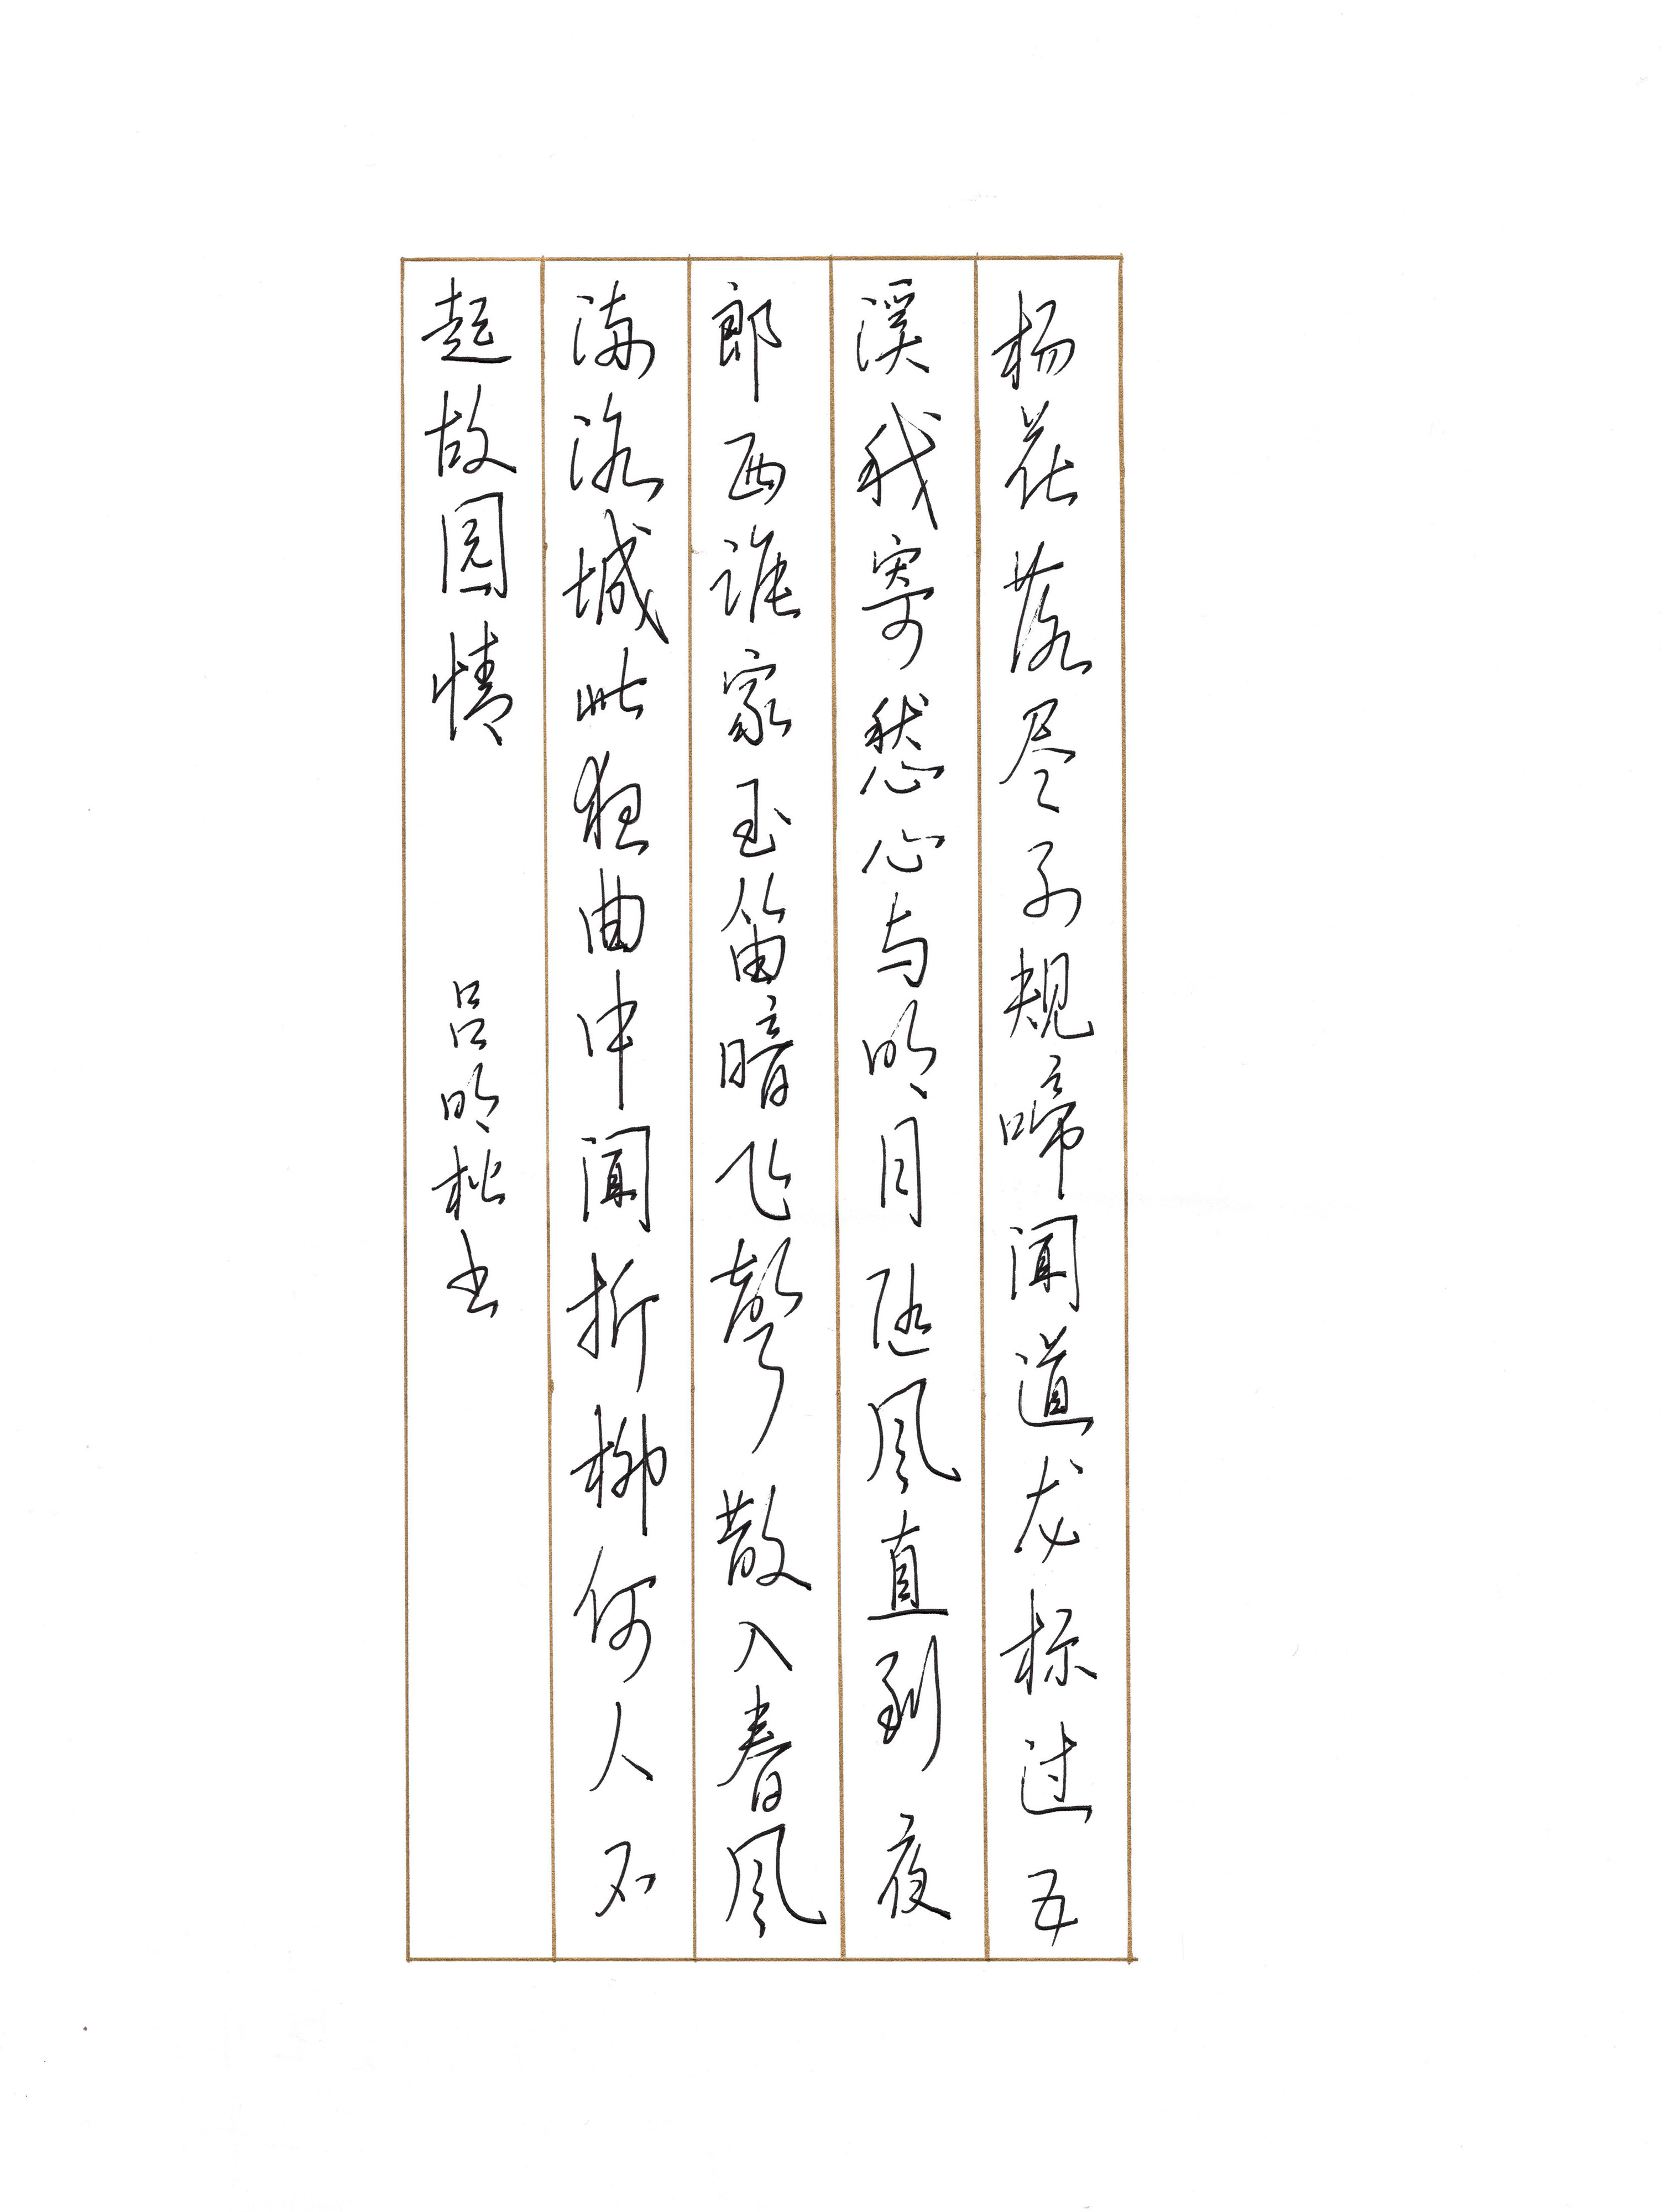 杨花落尽子规啼闻道龙标过五
溪我寄愁心与明月随风直到夜
郎西谁家玉笛暗飞声散入春风
满洛城此夜曲中闻折柳何人不
起故园情
吕明松书